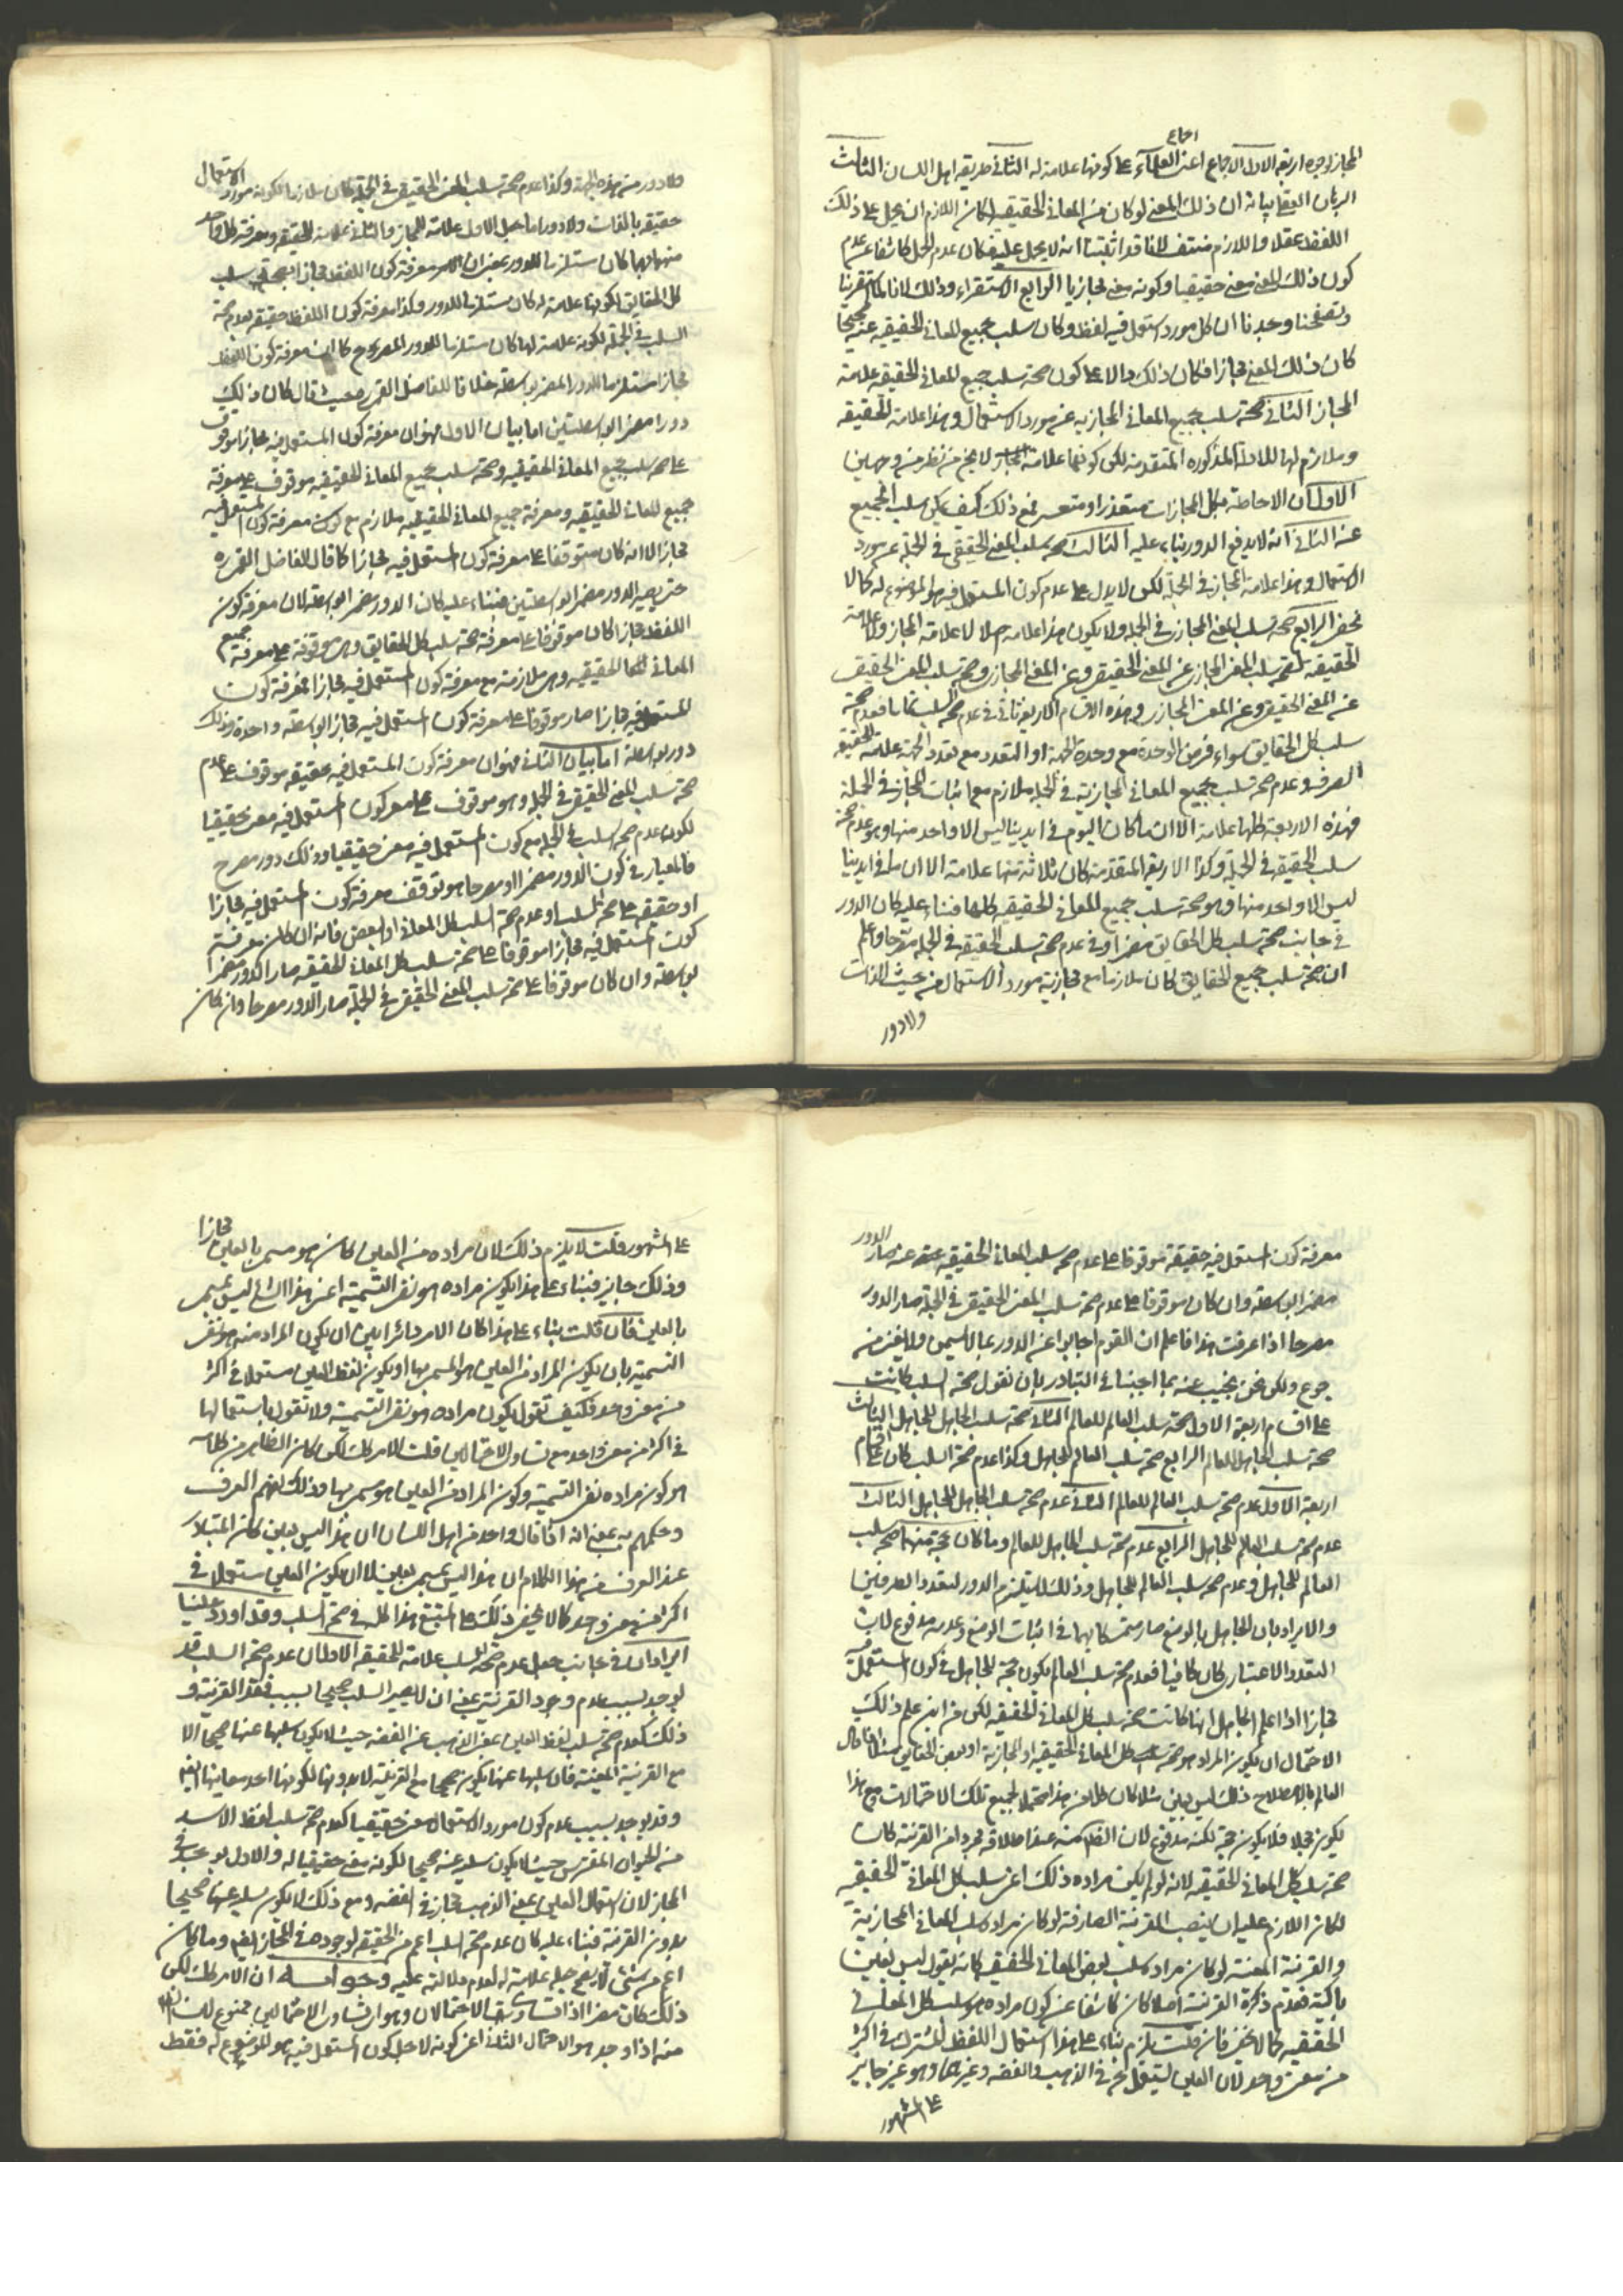 اجماع
المجاز لوجوه اربعة الاول الاجماع اعنى العلمآء على كونها علامة له الثانى طريقة اهل اللسان الثالث
البرهان العقلى بيانه ان ذلك المعنى لو كان من المعانى الحقيقية لكان اللازم ان يحمل على ذلك
اللفظ عقلا واللازم منتف لانا قد اثبتنا انه لا يحمل عليه فكان عدم الحمل كاشفا عن عدم
كون ذلك المعنى معنى حقيقيا وكونه معنى مجازيا الرابع الاستقراء وذلك لانا لما استقرينا
وتصفحنا وجدنا ان كل مورد استعمل فيه لفظ وكان سلب جميع المعانى الحقيقية عنه صحيحا
كان ذلك المعنى مجازا فكان ذلك دالا على كون صحة سلب جميع المعانى الحقيقية علامة
المجاز الثانى صحة سلب جميع المعانى المجازية عن مورد الاستعمال وهذا علامة الحقيقة
وملازم لها للادلة المذكورة المتقدمة لكن كونها علامة لا يخ من نظر من وجهين
الاول ان الاحاطة بكل المجازات متعذر او متعسر فمع ذلك كيف يمكن سلب الجميع
عنه الثانى انه لا يدفع الدور بناء عليه الثالث صحة سلب المعنى الحقيقى فى الجملة عن مورد
الاستعمال وهذا علامة المجاز فى الجملة لكن لا يدل على عدم كون المستعمل فيه هو الموضوع له كما لا
يخفى الرابع صحة سلب المعنى المجازى فى الجملة ولا يكون هذا علامة اصلا لا علامة المجاز ولا علامة
الحقيقة لصحة سلب المعنى المجازى عن المعنى الحقيقى وعن المعنى المجازى وصحة سلب المعنى الحقيقى
عن المعنى الحقيقى وعن المعنى المجازى وهذه الاقسام الاربعة تاتى فى عدم صحة السلب ايضا فعدم صحة
سلب كل الحقايق سواء فرض الوحدة مع وحدة الجهة او التعدد مع تعدد الجهة علامة الحقيقة
الصرف وعدم صحة سلب جميع المعانى المجازية فى الجملة ملازم مع اثبات المجاز فى الجملة
فهذه الاربعة كلها علامة الا ان ما كان اليوم فى ايدينا ليس الا واحد منها وهو عدم صحة
سلب الحقيقة فى الجملة وكذا الاربعة المتقدمة كان ثلاثة منها علامة الا ان ما فى ايدينا
ليس الا واحد منها وهو صحة سلب جميع المعانى الحقيقية كلها فبناء عليه كان الدور
فى جانب صحة سلب كل الحقايق مضمرا وفى عدم صحة سلب الحقيقة فى الجملة مصرحا واعلم
ان صحة سلب جميع الحقايق كان ملازما مع مجازية مورد الاستعمال من حيث الذات
ولا دور
ولا دور من هذه الجهة وكذا عدم صحة سلب المعنى الحقيقى فى الجملة كان ملازما لكونه مورد الاستعمال
حقيقة بالذات ولا دور اما جعل الاول علامة للمجاز والثانى علامة للحقيقة ومعرفة كل واحد
منهما بهما كان مستلزما للدور بمعنى ان معرفة كون اللفظ مجازا بصحة سلب
كل الحقايق لكونها علامة له كان مستلزما للدور وكذا معرفة كون اللفظ حقيقة بعدم صحة
السلب فى الجملة لكونه علامة لها كان مستلزما للدور المصرح كما ان معرفة كون اللفظ
مجازا مستلزما للدور المضمر بواسطة خلافا للفاضل القمى ره حيث قال كان ذلك
دورا مضمرا بواسطتين اما بيان الاول فهو ان معرفة كون المستعمل فيه مجازا موقوف
على صحة سلب جميع المعانى الحقيقية وصحة سلب جميع المعانى الحقيقية موقوف على معرفة
جميع المعانى الحقيقية ومعرفة جميع المعانى الحقيقية ملازم مع كون معرفة كون المستعمل فيه
مجازا لا انه كان متوقفا على معرفة كون المستعمل فيه مجازا كما قال الفاضل القمى ره
حتى يصير الدور مضمرا بواسطتين فبناء عليه كان الدور مضمرا بواسطة لان معرفة كون
اللفظ مجازا كان موقوفا على معرفة صحة سلب كل الحقايق وهى موقوفة على معرفة جميع
المعانى الحقيقية وهى ملازمة مع معرفة كون المستعمل فيه مجازا فمعرفة كون
المستعمل فيه مجازا صار موقوفا على معرفة كون المستعمل فيه مجازا بواسطة واحدة وذلك
دور بواسطة اما بيان الثانى فهو ان معرفة كون المستعمل فيه حقيقة موقوف على عدم
صحة سلب المعنى الحقيقى فى الجملة وهو موقوف على معرفة كون المستعمل فيه معنى حقيقيا
لكون عدم صحة السلب فى الجملة مع كون المستعمل فيه معنى حقيقيا وذلك دور مصرح
فالمعيار فى كون الدور مضمرا او مصرحا هو توقف معرفة كون المستعمل فيه مجازا
او حقيقة على صحة السلب او عدم صحة السلب كل المعانى او البعض فانه ان كان معرفة
كون المستعمل فيه مجازا موقوفا على صحة سلب كل المعانى الحقيقية صار الدور مضمرا
بواسطة وان كان موقوفا على صحة سلب المعنى الحقيقى فى الجملة صار الدور مصرحا وان كان
معرفة كون المستعمل فيه حقيقة موقوفا على عدم صحة سلب المعانى الحقيقية عنه صار الدور
مضمرا بواسطة وان كان موقوفا على عدم صحة سلب المعنى الحقيقى فى الجملة صار الدور
مصرحا اذا عرفت هذا فاعلم ان القوم اجابوا عن الدور بما لا يسمن ولا يغنى من
جوع ولكن نحن نجيب عنه بما اجبنا فى التبادر بان نقول صحة السلب كانت
على اقسام اربعة الاول صحة سلب العالم للعالم الثانى صحة سلب الجاهل للجاهل الثالث
صحة سلب الجاهل للعالم الرابع صحة سلب العالم للجاهل وكذا عدم صحة السلب كان على اقسام
اربعة الاول عدم صحة سلب العالم للعالم الثانى عدم صحة سلب الجاهل للجاهل الثالث
عدم صحة سلب العالم للجاهل الرابع عدم صحة سلب الجاهل للعالم وما كان حجة منها صحة سلب
العالم للجاهل وعدم صحة سلب العالم للجاهل وذلك لا يستلزم الدور لتعدد الطرفين
والايراد بان الجاهل بالوضع صار متمسكا بهما فى اثبات الوضع وعدمه مدفوع لان
التعدد الاعتبارى كان كافيا فعدم صحة سلب العالم يكون حجة للجاهل فى كون المستعمل فيه
مجازا اذا علم الجاهل انها كانت صحة سلب كل المعانى الحقيقية لكن من اين علم ذلك
الاحتمال ان يكون المراد هو صحة سلب كل المعانى الحقيقية او المجازية او بعض الحقايق مثلا اذا قال
العالم بالاصطلاح ذلك ليس بعين مثلا كان كلامه هذا محتملا لجميع تلك الاحتمالات ومع هذا
يكون مجملا فلا يكون حجة لكنه مدفوع لان الظاهر منه عند اطلاقه مجردا من القرينة كان
صحة سلب كل المعانى الحقيقية لانه لو لم يكن مراده ذلك اعنى سلب كل المعانى الحقيقية
لكان اللازم عليه ان ينصب القرينة الصارفة لو كان مراده سلب المعانى المجازية
والقرينة المعينة لو كان مراده سلب بعض المعانى الحقيقى كانه يقول ليس بعين
باكية فعدم ذكره القرينة اصلا كان كاشفا عن كون مراده هو سلب كل المعانى
الحقيقية كما لا يخفى فان قلت يلزم بناء على هذا استعمال اللفظ المشترك فى اكثر
من معنى واحد لان العين ليستعمل ح فى الذهب والفضة وغيرهما وهو غير جايز
على المشهور
على المشهور قلت لا يلزم ذلك لان مراده من العين كان هو مسمى بالعين مجازا
وذلك جايز فبناء على هذا يكون مراده هو نفى التسمية اعنى هذا الشئ ليس بمسمى
بالعين فان قلت بناء على هذا كان الامر دائرا بين ان يكون المراد منه هو نفى
التسمية بان يكون المراد من العين هو المسمى بها او يكون لفظ العين مستعملا فى اكثر
من معنى واحد فكيف تقول يكون مراده هو نفى التسمية ولا تقول باستعمالها
فى اكثر من معنى واحد مع تساوى الاحتمالين قلت الامر كك لكن كان الظاهر من كلامه
هو كون مراده نفى التسمية وكون المراد من العين هو مسمى بها وذلك بفهم العرف
وحكمهم به بمعنى انه اذا قال واحد من اهل اللسان ان هذا ليس بعين كان المتبادر
عند العرف من هذا الكلام ان هذا ليس بمسمى بعين لا ان يكون العين مستعملا فى
اكثر من معنى واحد كما لا يخفى ذلك على المتتبع هذا كله فى صحة السلب وقد اورد علينا
ايرادان فى جانب جعل عدم صحة السلب علامة للحقيقة الاول ان عدم صحة السلب قد
يوجد بسبب عدم وجود القرينة بمعنى ان لا يصير السلب صحيحا بسبب فقد القرينة و
ذلك كعدم صحة سلب لفظ العين بمعنى الذهب عن الفضة حيث لا يكون سلبها عنها صحيحا الا
مع القرينة المعينة فان سلبها عنها يكون صحيحا مع القرينة لا بدونها لكونها احد معانيها ايضا
وقد يوجد بسبب عدم كون مورد الاستعمال معنى حقيقيا كعدم صحة سلب لفظ الاسد
من الحيوان المفترس حيث لا يكون سلبه عنه صحيحا لكونه معنى حقيقيا له والاول يوجد فى
المجاز لان استعمال العين بمعنى الذهب مجاز فى الفضة ومع ذلك لا يكون سلبه عنها صحيحا
بدون القرينة فبناء عليه كان عدم صحة السلب اعم من الحقيقة لوجوده فى المجاز ايضا وما كان
اعم من شئ لا يصح جعله علامة له لعدم دلالته عليه وجوابه ان الامر كك لكن
ذلك كان مضرا اذا تساوى الاحتمالان وهو اى تساوى الاحتمالين ممنوع لان الظاهر
منه اذا وجد هو الاحتمال الثانى اعنى كونه لاجل كون المستعمل فيه هو الموضوع له فقط